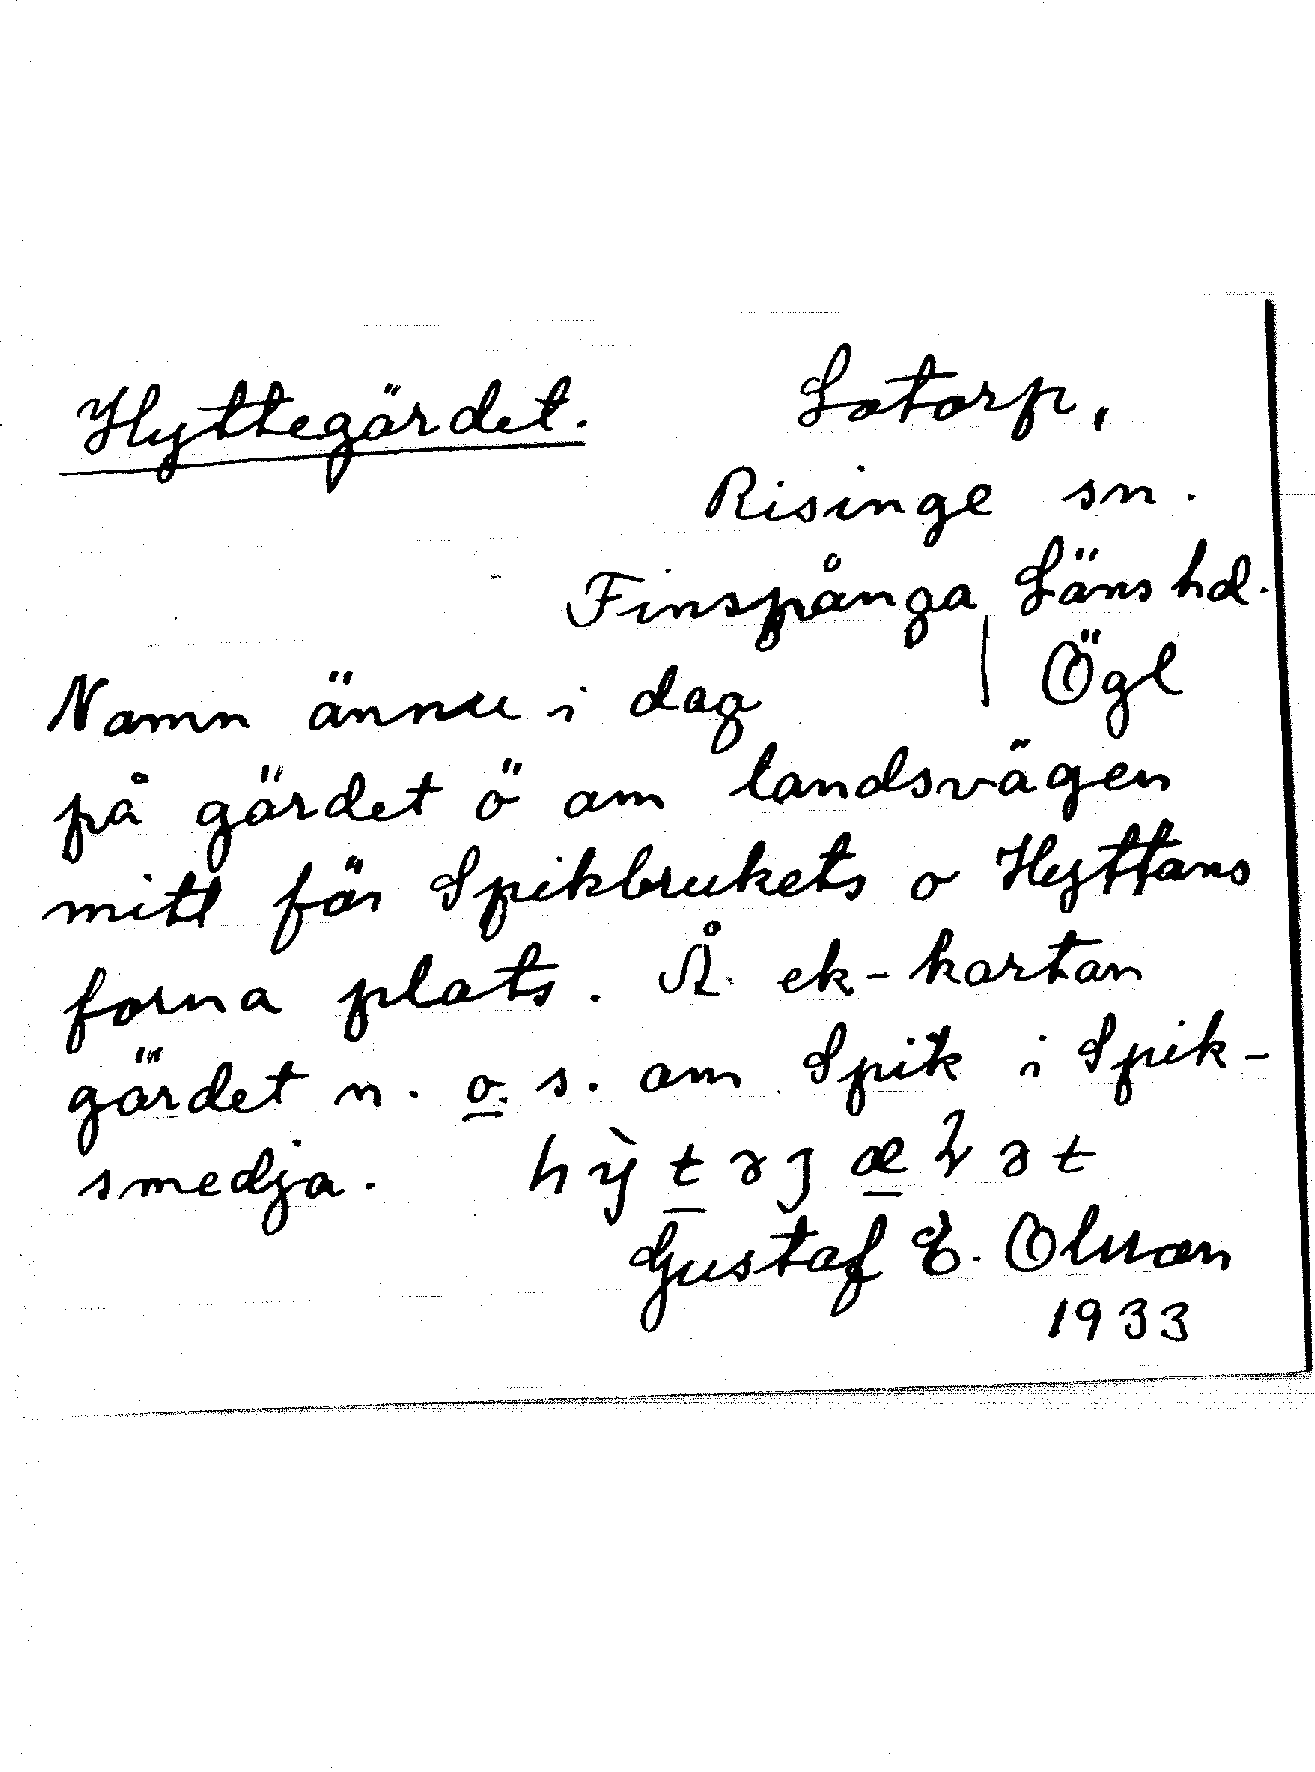 Hyttegärdet. Lotorp,
Risinge sn.
Finspånga Läns hd.
Namn ännu i dag | Ögl
på gärdet ö om landsvägen
mitt för Spikbrukets o Hyttans
forna plats. Å ek-kartan
gärdet n. o. s. om Spik i Spik-
smedja.
Gustaf E. Olsson
1933